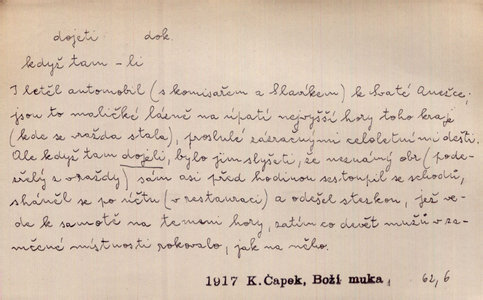 dojeti dok.
když tam - li
I letěl automobil (s komisařem a Slavíkem) k svaté Anežce;
jsou to maličké lázně na úpatí nejvyšší hory toho kraje
(kde se vražda stala), proslulé zázračnými celoletními dešti.
Ale když tam dojeli, bylo jim slyšeti, že neznámý obr (pode-
zřelý z vraždy) sám asi před hodinou sestoupil se schodů,
sháněl se po účtu (v restauraci) a odešel stezkou, jež ve-
de k samotě na temeni hory, zatím co devět mužů v za-
mčené místnosti rokovalo, jak na něho.
1917 K.Čapek, Boží muka, 62,6